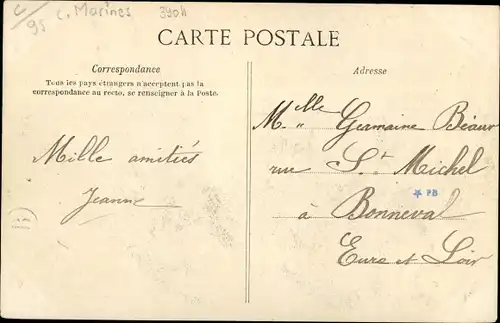 c. Marines
95
CARTE POSTALE
Correspondance
Tous les pays étrangers n'acceptent pas la
correspondance au recto, se renseigner à la Poste.
Mille amitiés
Jeanne
Adresse
Mlle Germaine Béaur
rue St Michel
* PB
à Bonneval
Eure et Loir